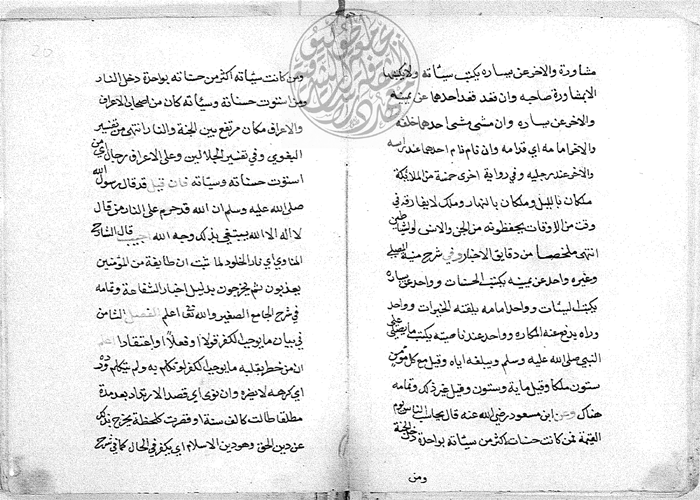 مشاورة والاخر عن يساره يكتب سيئاته ولا يكتبها
الا بمشاورة صاحبه وان قعد قعد احدهما عن يمينه
والاخر عن يساره وان مشى مشى احدهما خلفه
والاخر امامه اي قدامه وان نام نام احدهما عند راسه
والاخر عند رجليه وفي رواية اخرى خمسة من الملائكة
ملكان بالليل وملكان بالنهار وملك لا يفارقه في
وقت من الاوقات يحفظونه من الجن والانس والشياطين
انتهى ملخصا من دقايق الاخبار وفي شرح منية المصلي
وغيره واحد عن يمينه يكتب الحسنات وواحد عن يساره
يكتب السيئات وواحد امامه يلقنه الخيرات وواحد
وراه يدفع عنه المكاره وواحد عند ناصيته يكتب ما يصلي على
النبي صلى الله عليه وسلم ويبلغه اياه وقيل مع كل مؤمن
ستون ملكا وقيل ماية وستون وقيل غير ذلك وتمامه
هناك وعن ابن مسعود رضي الله عنه قال يحاسب الناس يوم
القيمة فمن كانت حسناته اكثر من سيئاته بواحدة دخل الجنة
ومن
ومن كانت سيئاته اكثر من حسناته بواحدة دخل النار
ومن استوت حسناته وسيئاته كان من اصحاب الاعراف
والاعراف مكان مرتفع بين الجنة والنار انتهى من تفسير
البغوي وفي تفسير الجلالين وعلى الاعراف رجال اي من
استوت حسناته وسيئاته فان قيل قد قال رسول الله
صلى الله عليه وسلم ان الله قد حرم على النار من قال
لا اله الا الله يبتغي بذلك وجه الله اجيب قال الشارح
المناوي اي نار الخلود لما ثبت ان طايفة من المؤمنين
يعذبون ثم يخرجون بدليل اخبار الشفاعة وتمامه
في شرح الجامع الصغير والله تعالى اعلم الفصل الثامن
في بيان ما يوجب الكفر قولا وفعلا واعتقادا اعلم
ان من خطر بقلبه ما يوجب الكفر لو تكلم به ولم يتكلم
اي كرهه لا يضره وان نوى اي قصد الارتداد بعد مدة
مطلقا طالت كالف سنة او قصرت كلحظة يخرج بذلك
عن دين الحق وهو دين الاسلام اي يكفر في الحال كما في شرح